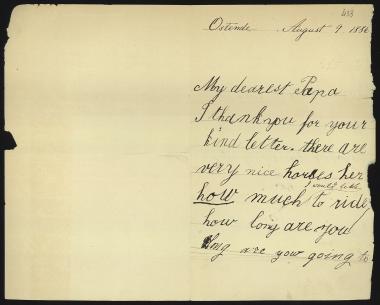 433
Ostende August 9 1886
My dearest Papa
I thank you for your
kind letter. there are
very nice horses her
I would like
how much to ride
how long are you
long are you going to